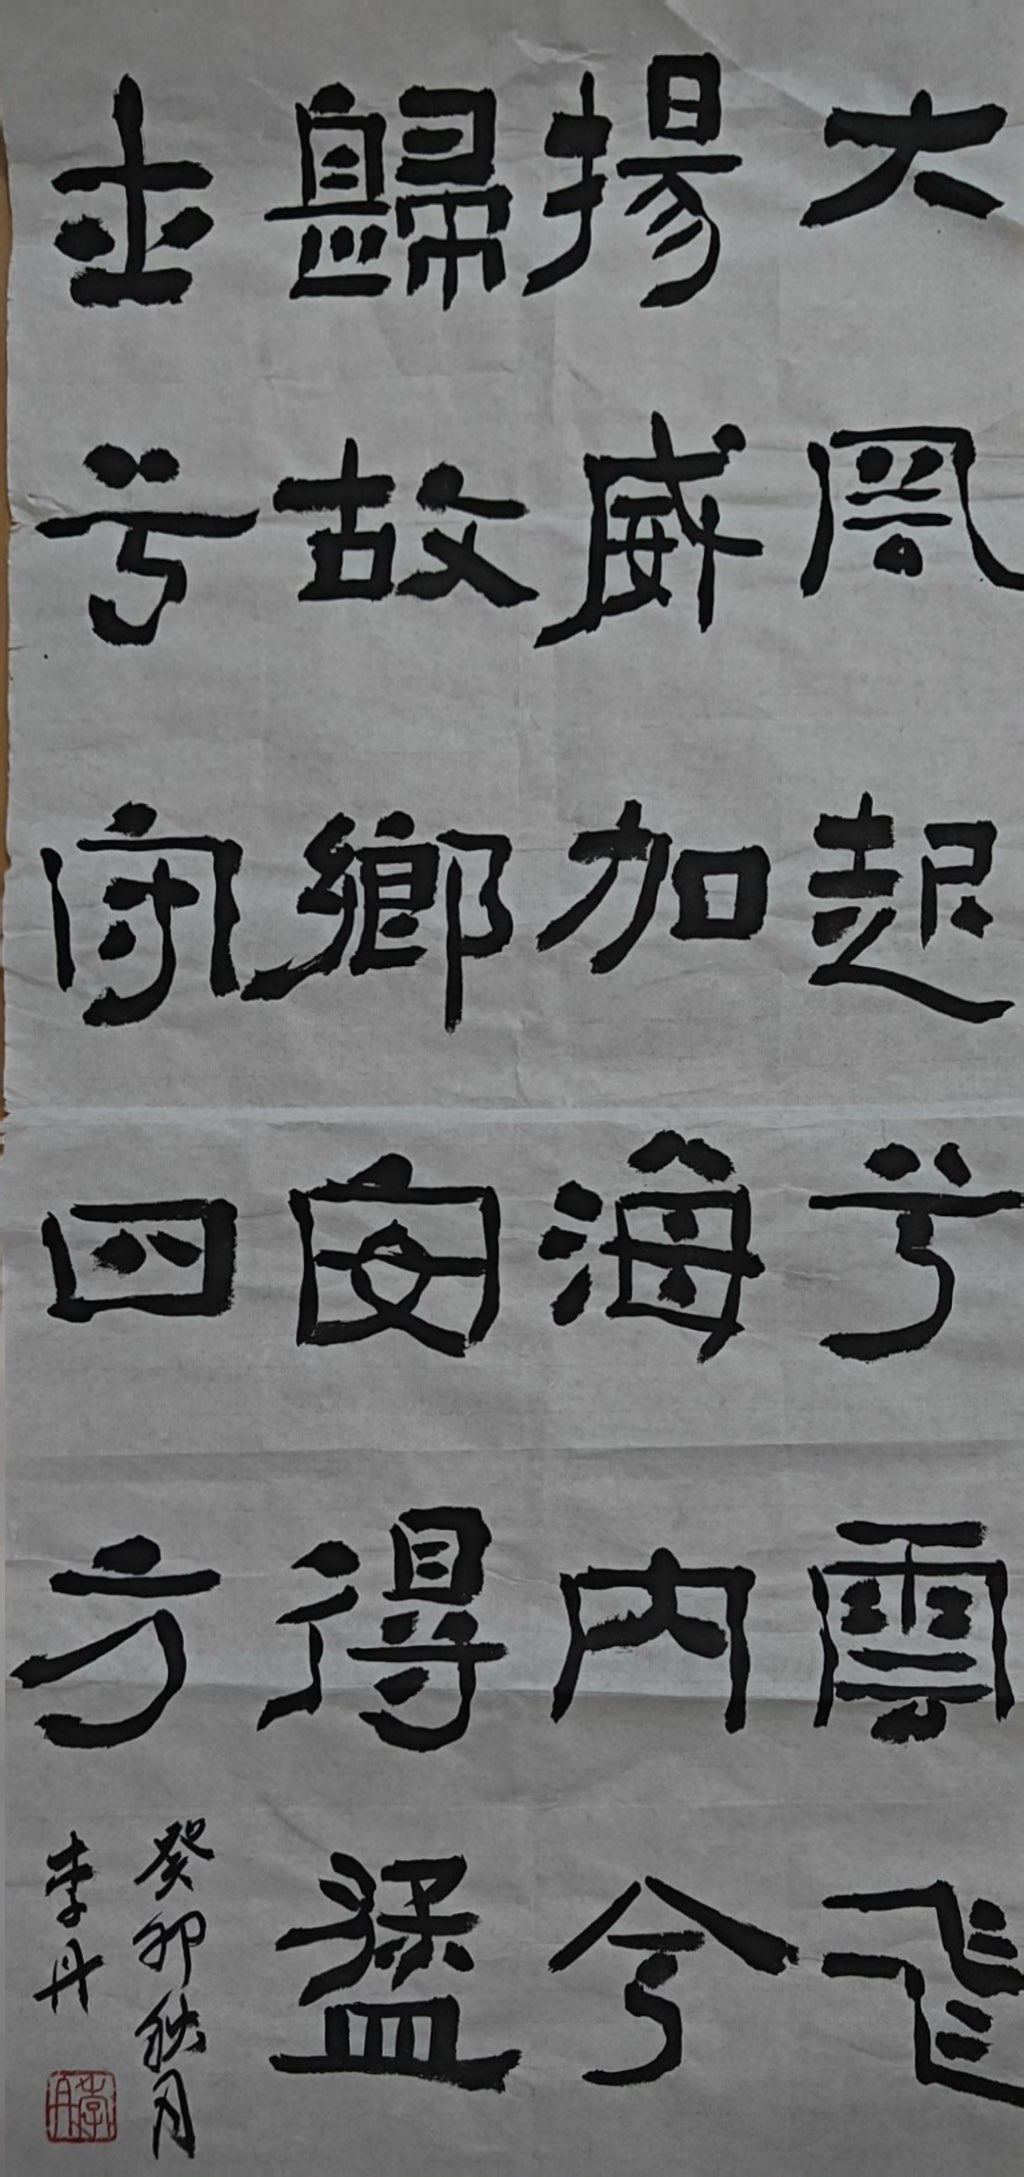 大風起兮雲飛
揚威加海内今
歸故鄉安得猛
士兮守四方
癸卯秋月
李丹
李丹